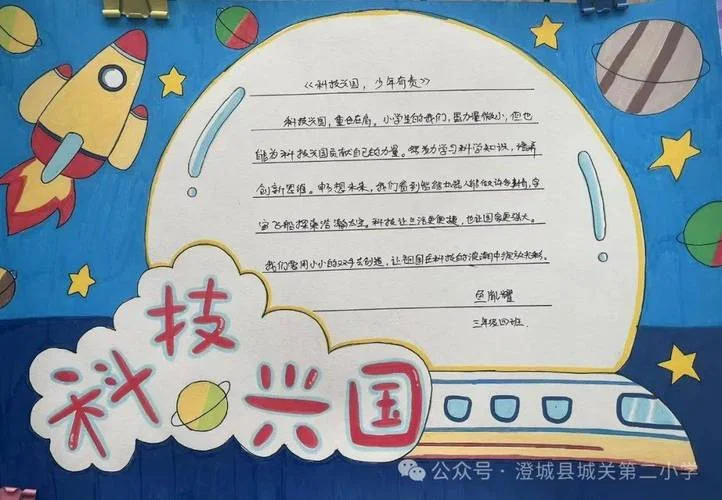 《科技兴国，少年有责》
科技兴国，重任在肩。小学生的我们，虽力量微小，但也
能为科技兴国贡献自己的力量。要努力学习科学知识，培养
创新思维。畅想未来，我们看到智能机器人能做许多事情，宇
宙飞船探索浩瀚太空。科技让生活更便捷，也让国家更强大。
我们要用小小的双手去创造，让祖国在科技的浪潮中绽放光彩。
胤耀
三年级四班
科技
兴国
公众号·澄城县城关第二小学